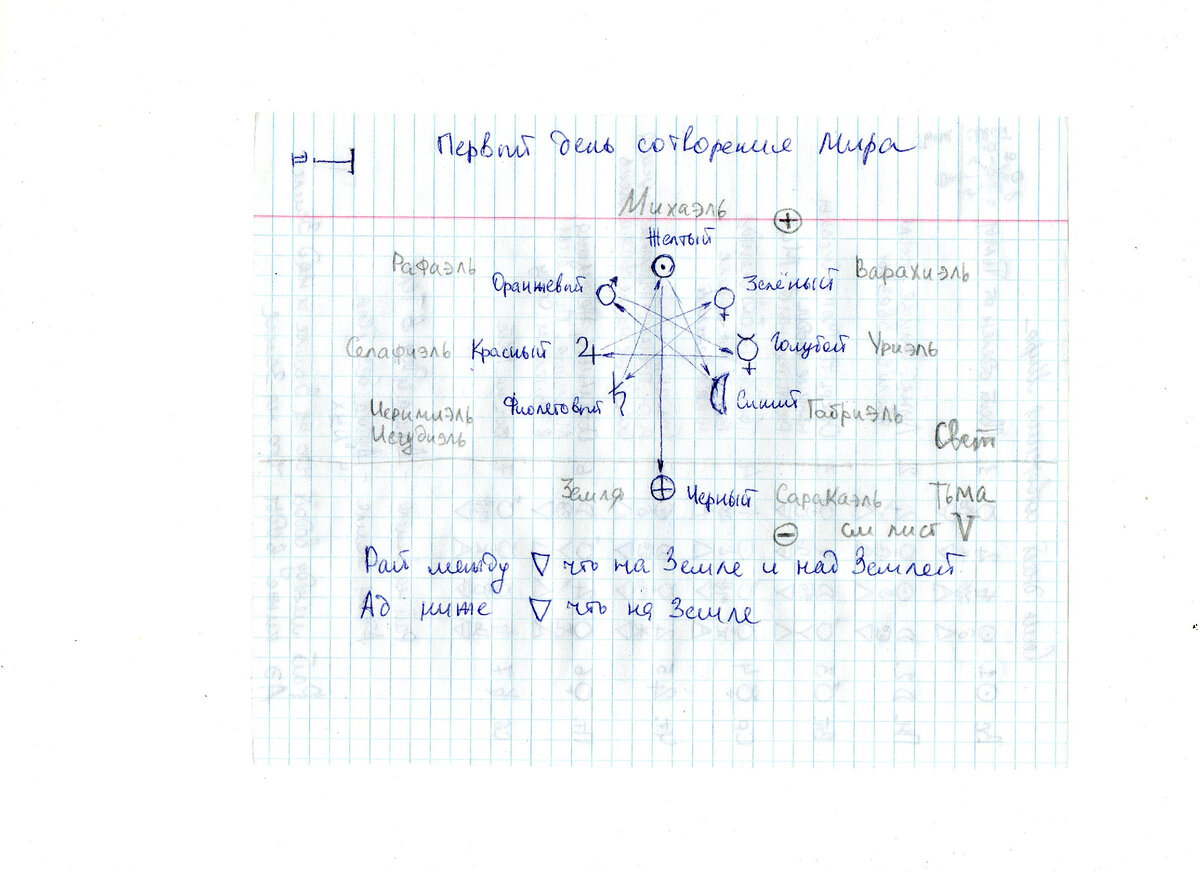 I
п
Первый день сотворения Мира
Михаэль +
Желтый
Рафаэль Оранжевый ♂ ☉ ♀ Зелёный Варахиэль
Селафиэль Красный ♃ ☿ Голубой Уриэль
Иеримиэль Фиолетовый ♄ ☾ Синий Габриэль
Иегудиэль
Свет
Земля ⊕ Черный Саракаэль Тьма
− см лист V
Рай между ▽ что на Земле и над Землей
Ад ниже ▽ что на Земле